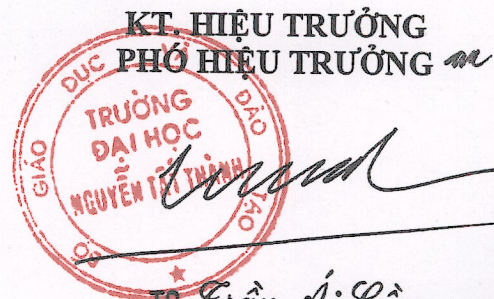 KT. HIỆU TRƯỞNG
PHÓ HIỆU TRƯỞNG
BỘ GIÁO DỤC VÀ ĐÀO TẠO
TRƯỜNG
ĐẠI HỌC
NGUYỄN TẤT THÀNH
Trần Ái Cầm